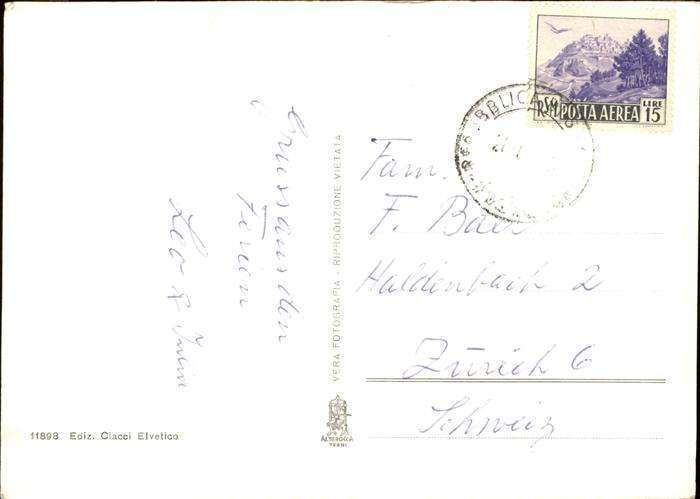 R.S.M. POSTA AEREA LIRE 15
Gruss aus den
Ferien
Leo &
VERA FOTOGRAFIA - RIPRODUZIONE VIETATA
Fam.
F. Baer
Haldenbach 2
Zürich 6
Schweiz
ALTEROCCA
TERNI
11898 Ediz. Ciacci Elvetico